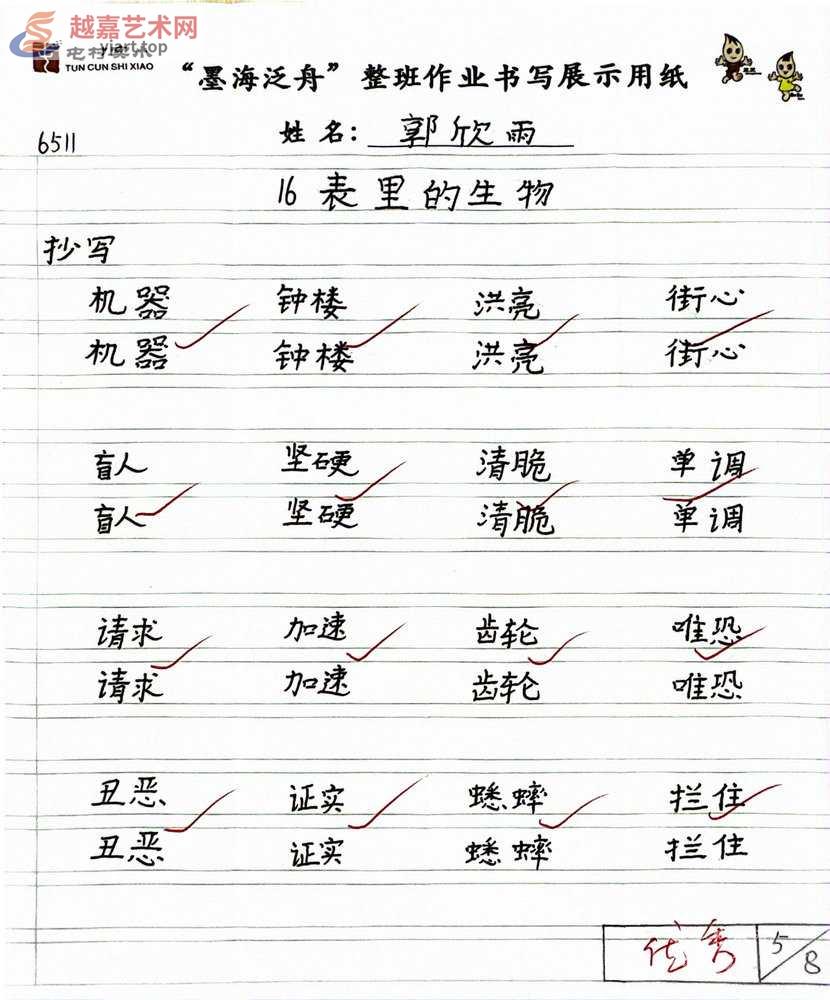 越嘉艺术网
yjart.top
屯村实小
TUN CUN SHI XIAO
“墨海泛舟”整班作业书写展示用纸
姓名：郭欣雨
6511
16 表里的生物
抄写
机器 钟楼 洪亮 街心
机器 钟楼 洪亮 街心
盲人 坚硬 清脆 单调
盲人 坚硬 清脆 单调
请求 加速 齿轮 唯恐
请求 加速 齿轮 唯恐
丑恶 证实 蟋蟀 拦住
丑恶 证实 蟋蟀 拦住
优秀 5/8